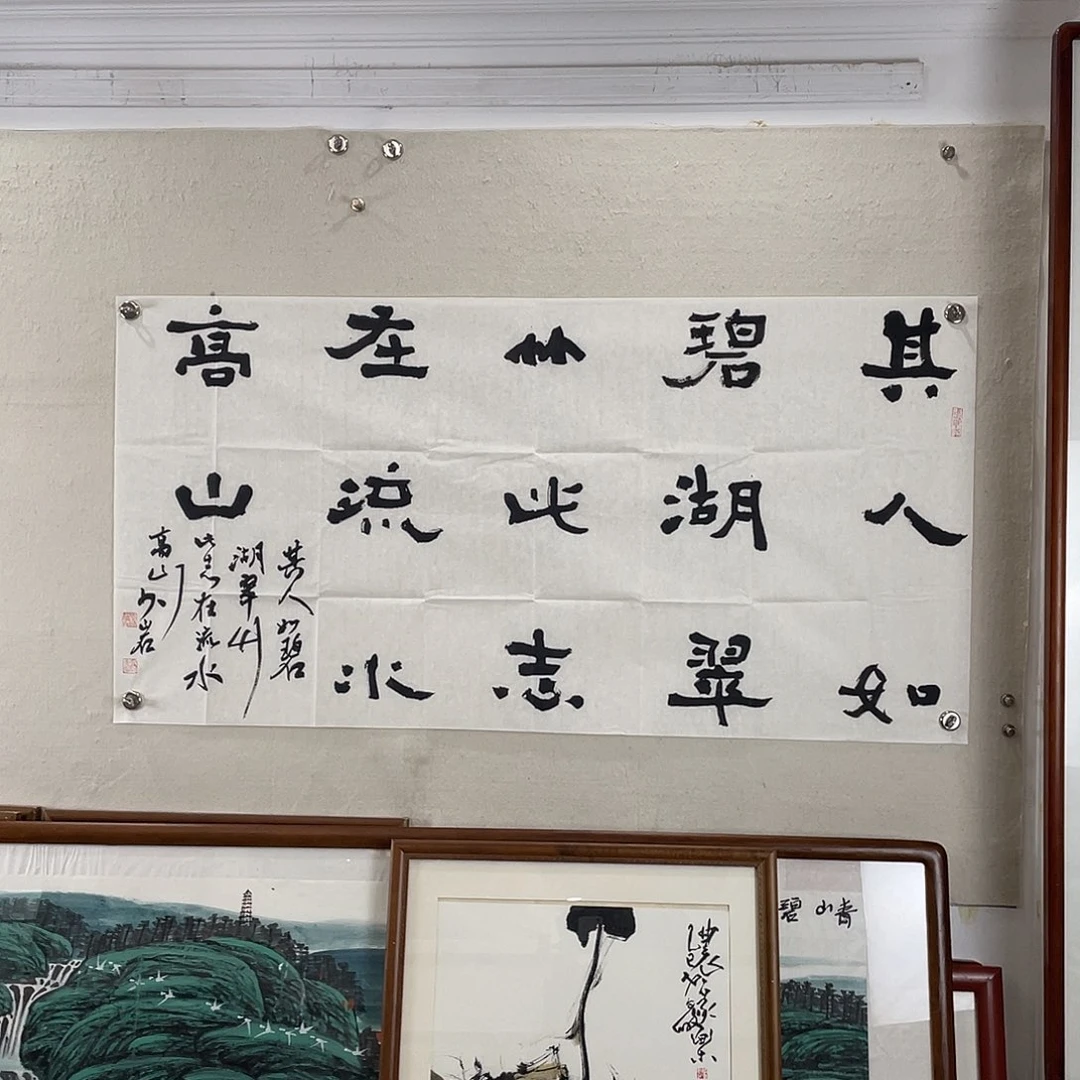 其人如
碧湖翠
竹此志
在流水
高山
其人如碧
湖翠竹
此志在流水
高山
青山碧